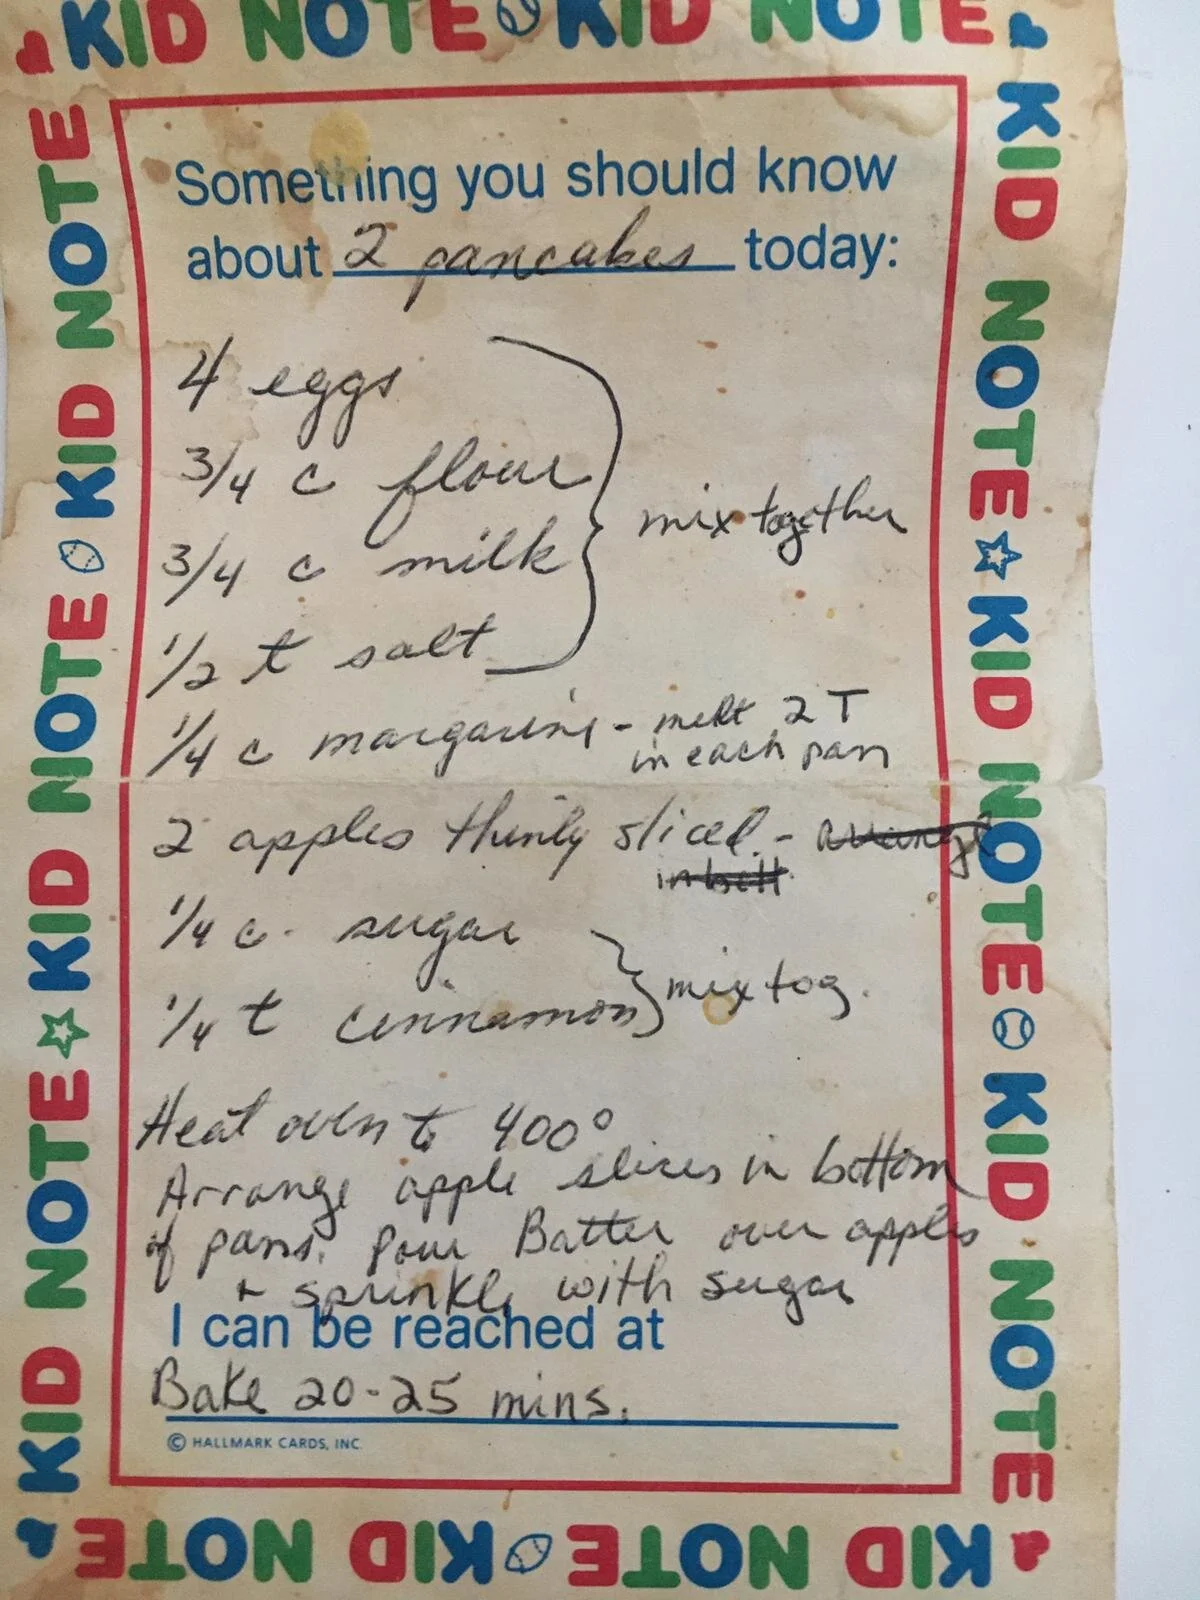 KID NOTE KID NOTE
Something you should know
about 2 pancakes today:
4 eggs
3/4 c flour
3/4 c milk
mix together
1/2 t salt
1/4 c margarine - melt 2 T
in each pan
2 apples thinly sliced - arrange
in bott
1/4 c. sugar
1/4 t cinnamon
mix tog.
Heat oven to 400°
Arrange apple slices in bottom
of pans. Pour Batter over apples
+ sprinkle with sugar
I can be reached at
Bake 20-25 mins.
© HALLMARK CARDS, INC.
KID NOTE KID NOTE KID NOTE KID NOTE
KID NOTE KID NOTE KID NOTE
KID NOTE KID NOTE